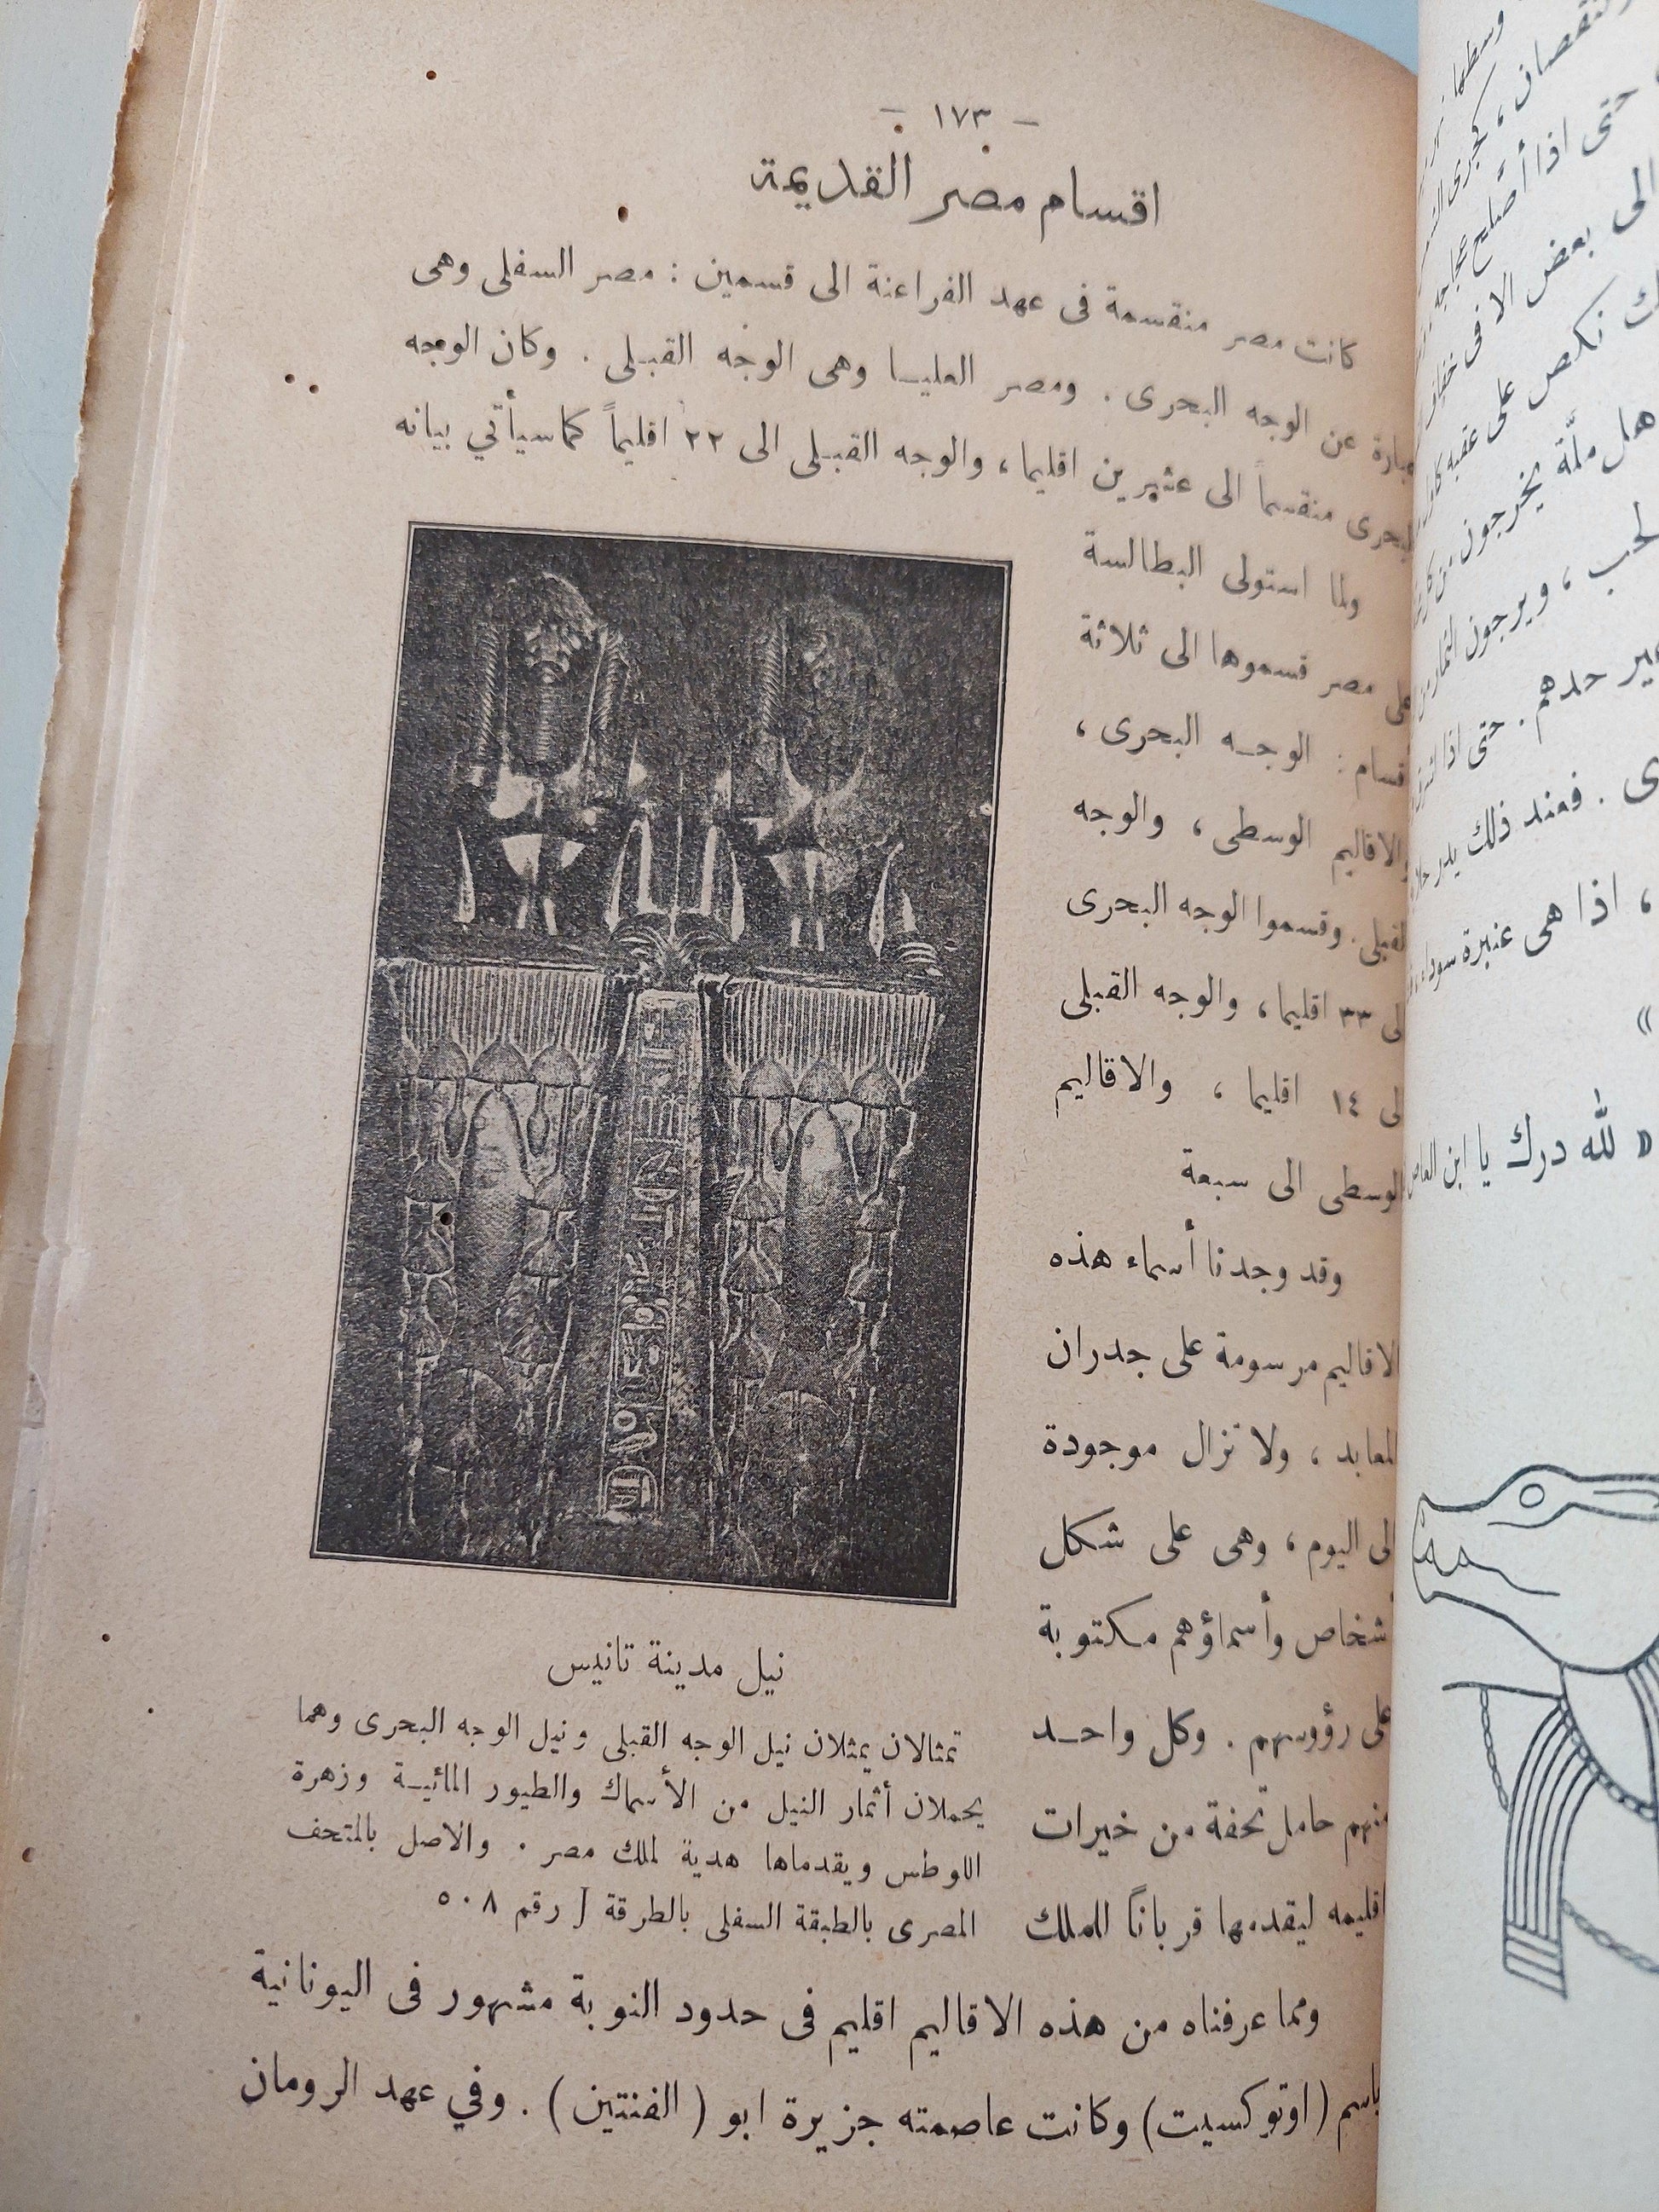 — ١٧٣ —
اقسام مصر القديمة
كانت مصر منقسمة فى عهد الفراعنة الى قسمين : مصر السفلى وهى
عبارة عن الوجه البحرى . ومصر العليا وهى الوجه القبلى . وكان الوجه
البحرى منقسماً الى عشرين اقليما ، والوجه القبلى الى ٢٢ اقليماً كما سيأتي بيانه
ولما استولى البطالسة
على مصر قسموها الى ثلاثة
أقسام : الوجه البحرى ،
والاقاليم الوسطى ، والوجه
القبلى . وقسموا الوجه البحرى
الى ٣٣ اقليما ، والوجه القبلى
الى ١٤ اقليما ، والاقاليم
الوسطى الى سبعة
وقد وجدنا أسماء هذه
الاقاليم مرسومة على جدران
المعابد ، ولا تزال موجودة
الى اليوم ، وهى على شكل
أشخاص وأسماؤهم مكتوبة
على رؤوسهم . وكل واحد
منهم حامل تحفة من خيرات
اقليمه ليقدمها قرباناً للملك
نيل مدينة تانيس
تمثالان يمثلان نيل الوجه القبلى ونيل الوجه البحرى وهما
يحملان أثمار النيل من الأسماك والطيور المائية وزهرة
اللوطس ويقدماها هدية لملك مصر . والاصل بالمتحف
المصرى بالطبقة السفلى بالطرقة J رقم ٥٠٨
ومما عرفناه من هذه الاقاليم اقليم فى حدود النوبة مشهور فى اليونانية
باسم ( اوتوكسيت ) وكانت عاصمته جزيرة ابو ( الفنتين ) . وفي عهد الرومان
حتى اذا
الى بعض
نكص على عقبه
هل ملّة يخرجون
حدهم . حتى اذا
. فعند ذلك
، اذا هى عنبرة سوداء
»
« لله درك يا ابن العاص